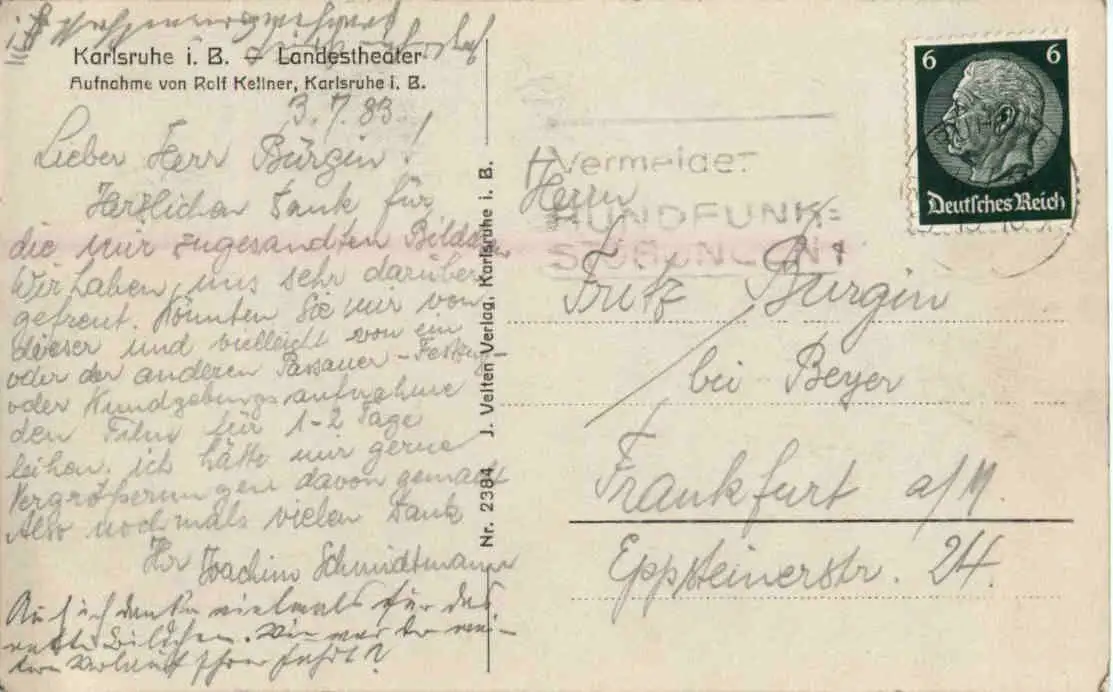 Karlsruhe i. B. – Landestheater
Aufnahme von Rolf Kellner, Karlsruhe i. B.
3.7.33.
Lieber Herr Bürgin!
Herzlichen Dank für
die mir zugesandten Bilder
Wir haben uns sehr darüber
gefreut. Könnten Sie mir von
dieser und vielleicht von ein
oder der anderen Passauer-Festzug-
oder Kundgebungsaufnahme
den Film für 1-2 Tage
leihen. ich hätte mir gerne
Vergrößerungen davon gemacht
Also nochmals vielen Dank
Ihr Joachim Schmidtmann
Auch ich danke vielmals für das
nette Bildchen. Wie war der wei-
tere Verlauf Ihrer Fahrt?
Nr. 2384 J. Velten Verlag, Karlsruhe i. B.
Vermeidet
RUNDFUNK=
STÖRUNGEN!
6 6
Deutsches Reich
Herrn
Fritz Bürgin
bei Beyer
Frankfurt a/M.
Eppsteinerstr. 24.